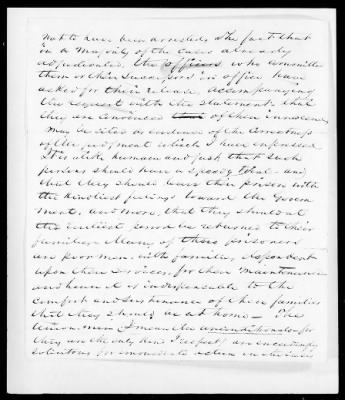 not to have been arrested. The fact that
in a majority of the cases already
adjudicated, the officers who committed
them or their successors in office have
asked for their release accompanying
the request with the statement that
they are convinced of their innocence
may be cited as evidence of the correctness
of the judgment which I have expressed
It is both humane and just that such
persons should have a speedy trial - and
that they should leave their prison with
the kindliest feelings toward the Govern
ment, and more, that they should at
the earliest period be returned to their
families. Many of these prisoners
are poor men, with families dependent
upon their services, for their maintenance
and hence it is indispensable to the
comfort and sustenance of their families
that they should be at home - The
Union men I mean the unconditional for
they are the only kind I respect, are exceedingly
solicitous for immediate action in the